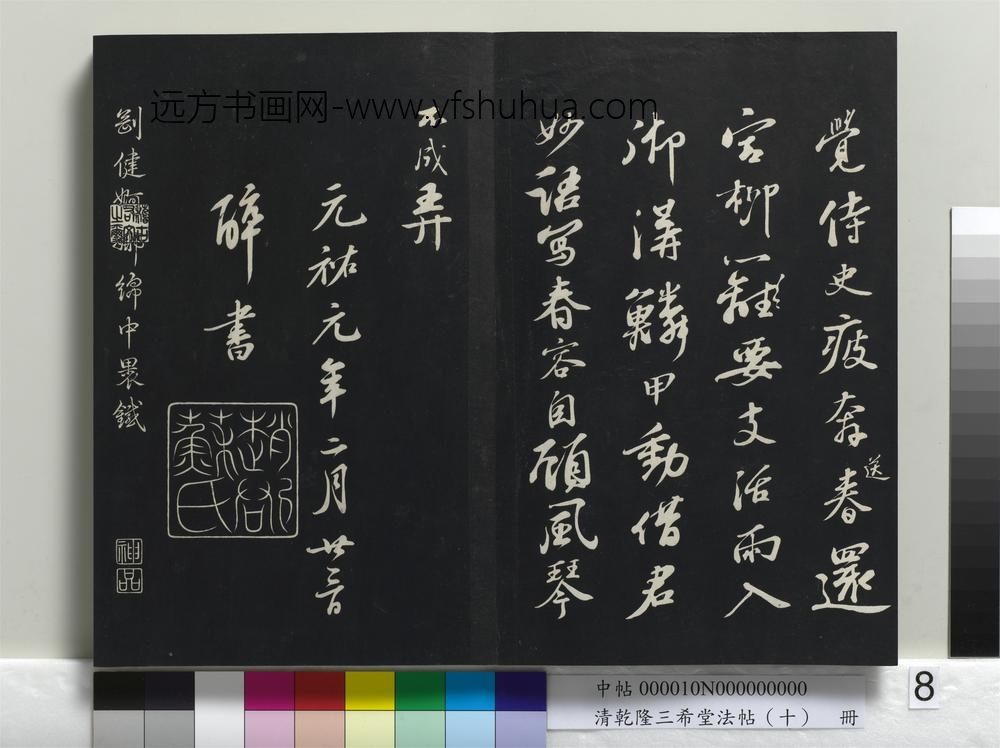 覺侍史疲奔春還
送
宮柳八離要支活雨入
御溝鱗甲動借君
妙語寫春容自顧風琴
不成弄
元祐元年二月廿三日
醉書
趙郡蘇氏
剛健婀娜綿中裹鐵
神品
远方书画网-www.yfshuhua.com
中帖 000010N000000000
清乾隆三希堂法帖（十） 冊
8